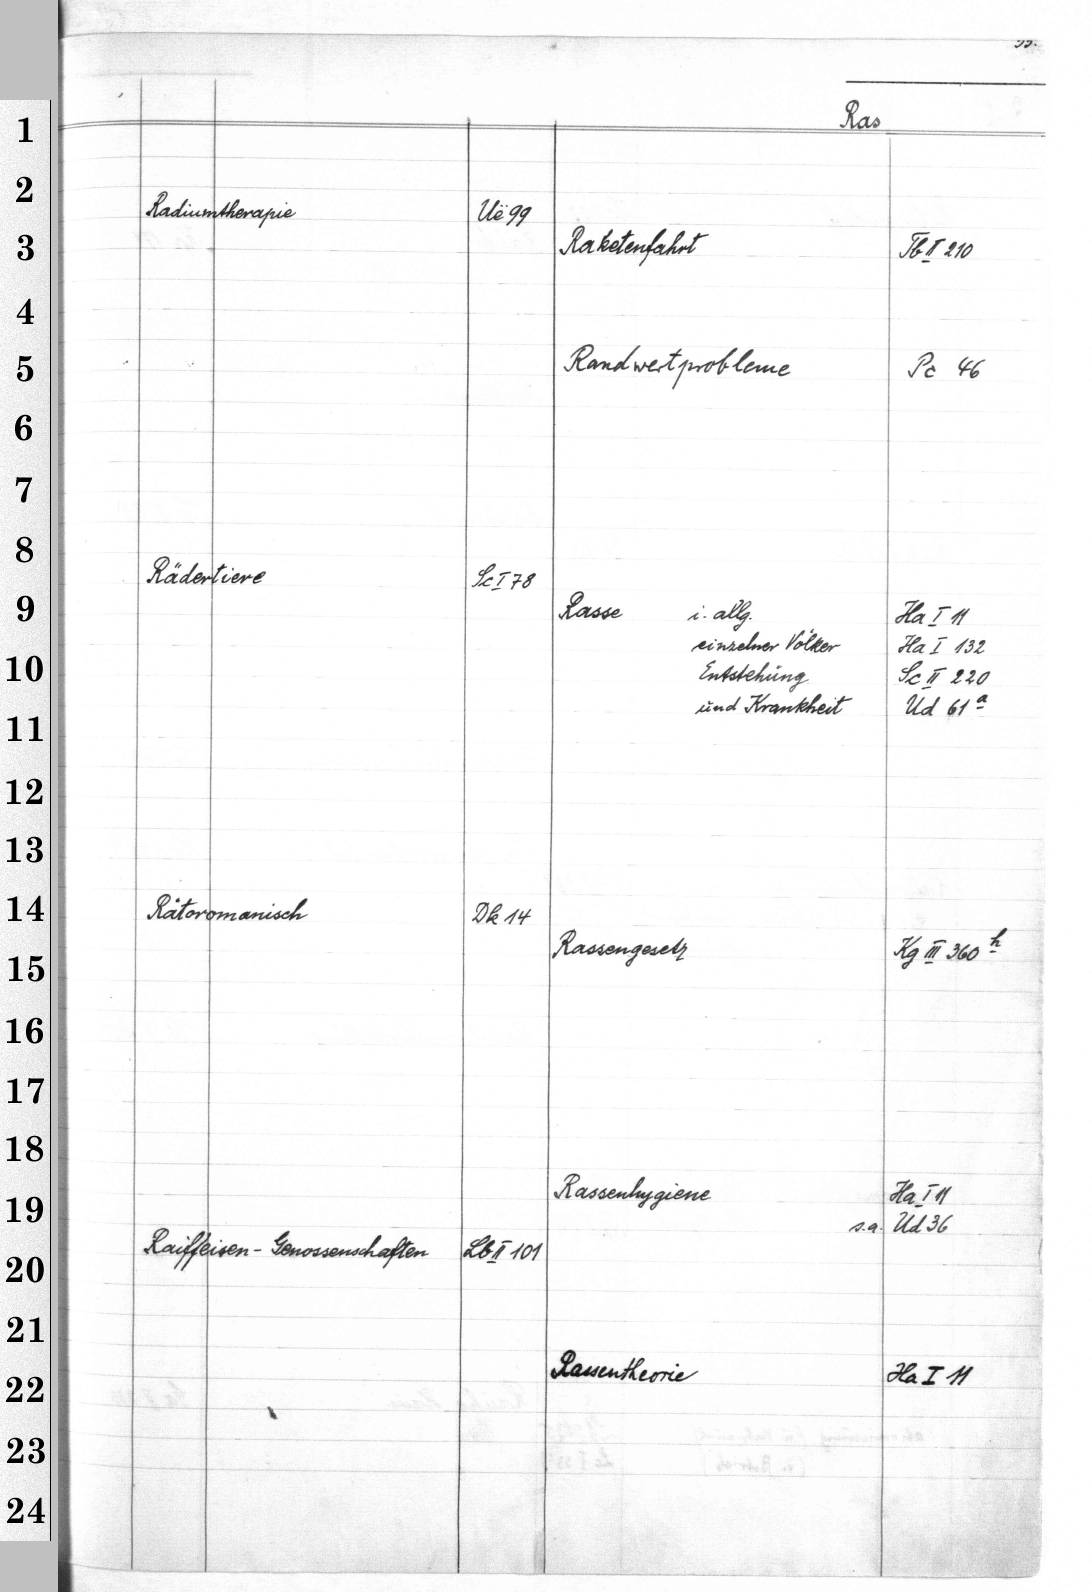 Ras
1
2
Radiumtherapie Uë 99
3
Raketenfahrt Tb II 210
4
5
Randwertprobleme Pc 46
6
7
8
Rädertiere Sc I 78
9
Rasse i. allg. Ha I 11
einzelner Völker Ha I 132
10
Entstehung Sc II 220
und Krankheit Ud 61 a
11
12
13
14
Rätoromanisch Dk 14
Rassengesetz Kg III 360 h
15
16
17
18
Rassenhygiene Ha I 11
19
s.a. Ud 36
Raiffeisen-Genossenschaften Lb II 101
20
21
Rassentheorie Ha I 11
22
23
24